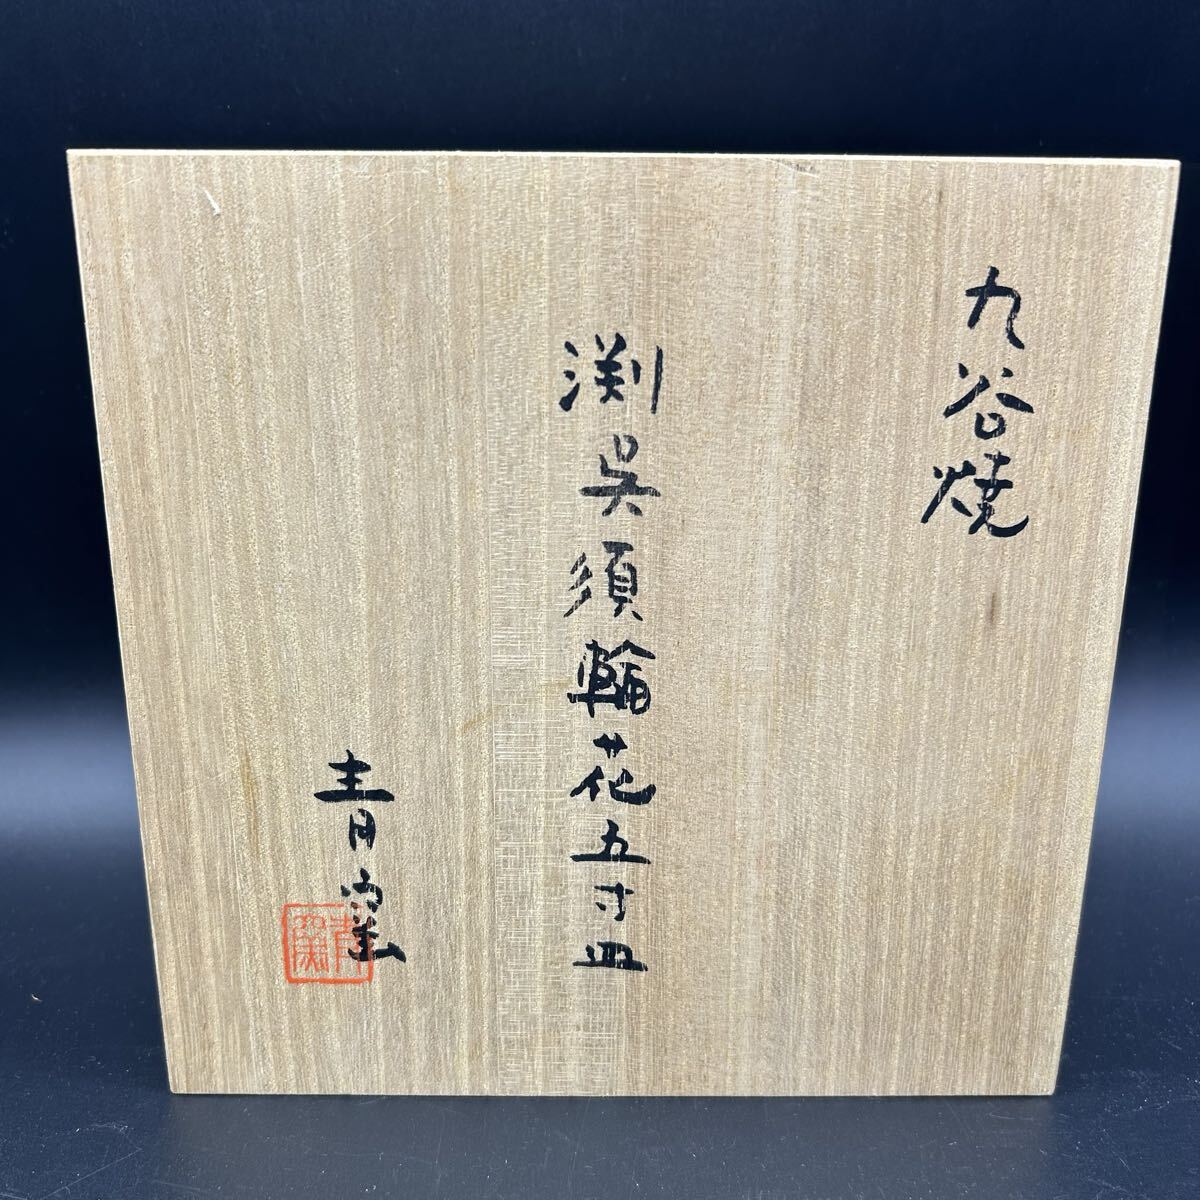 九谷焼
渕呉須輪花五寸皿
青窯
青窯